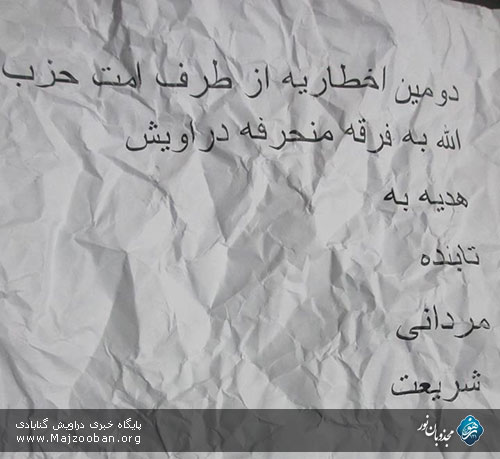 دومین اخطاریه از طرف امت حزب
الله به فرقه منحرفه دراویش
هدیه به
تابنده
مردانی
شریعت
پایگاه خبری دراویش گنابادی
www.Majzooban.org
مجذوبان نور